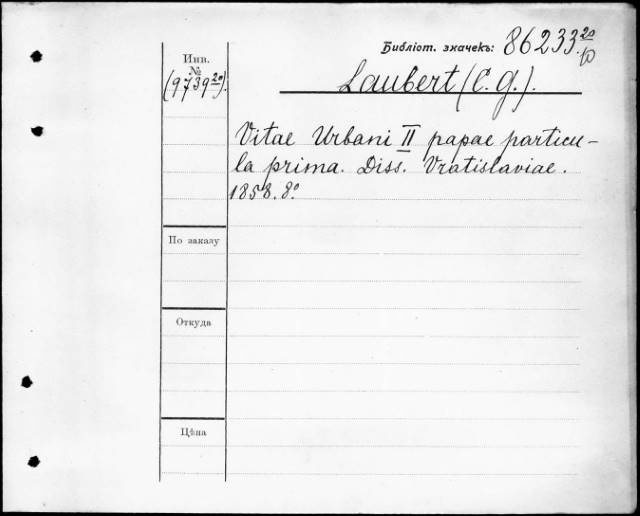 Библіот. значекъ: 86233 20/р
Инв.
№
(9739 20).
Laubert (C. G.).
Vitae Urbani II papae particu-
la prima. Diss. Vratislaviae.
1858. 8º
По заказу
Откуда
Цѣна